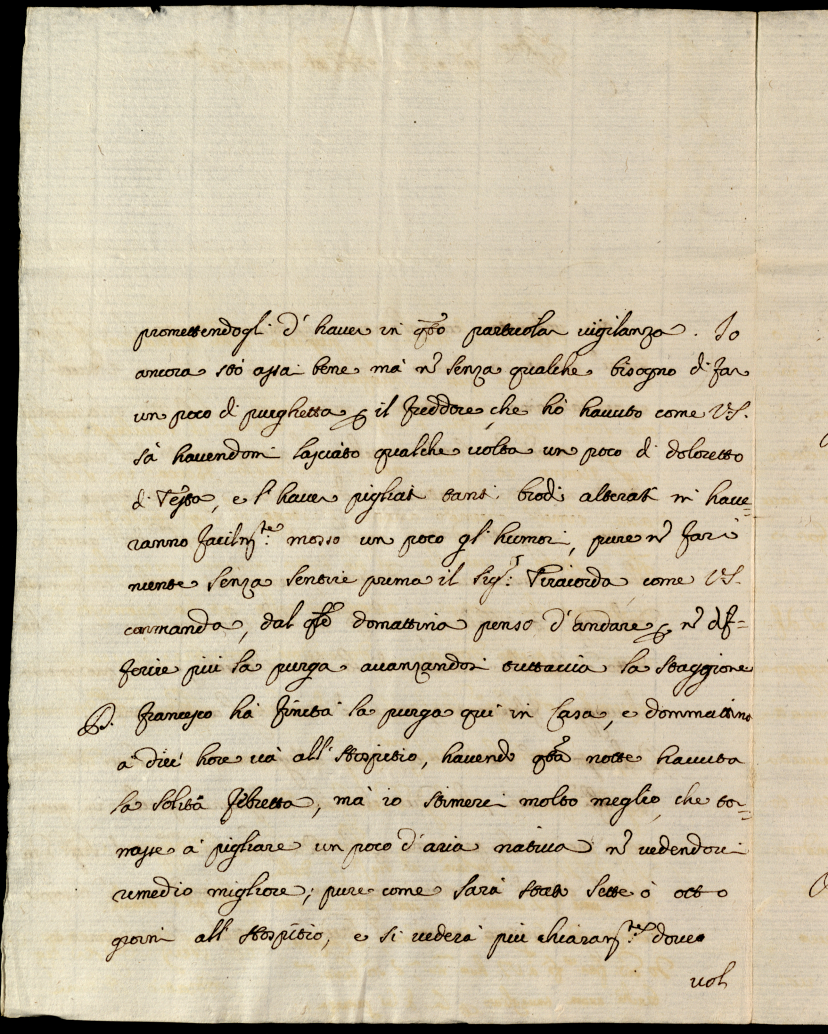 promettendogli d'haver in qsto particolar vigilanza. Io
ancora stò assai bene mà nõ senza qualche bisogno di far
un poco di purghetta p il freddore, che hò havuto come V.S.
sà havendomi lasciato qualche volta un poco di doloretto
di testa, e l'haver pigliati tanti brodi alterati mi have=
ranno facilmte: mosso un poco gl'humori, pure nõ farò
niente senza sentire prima il Sigr: Tiracorda come V.S.
commanda, dal qle domattina penso d'andare p nõ dif=
ferire più la purga avanzandosi tuttavia la staggione
D. Francesco hà finita la purga quì in Casa, e dommattina
à dieci hore và all'Hospitio, havendo qsta notte havuta
la solita febretta, mà io stimerei molto meglio, che tor=
nasse à pigliare un poco d'aria nativa nõ vedendovi
rimedio migliore; pure come sarà stato sette ò otto
giorni all'Hospitio, e si vederà più chiaramte: dove
vol